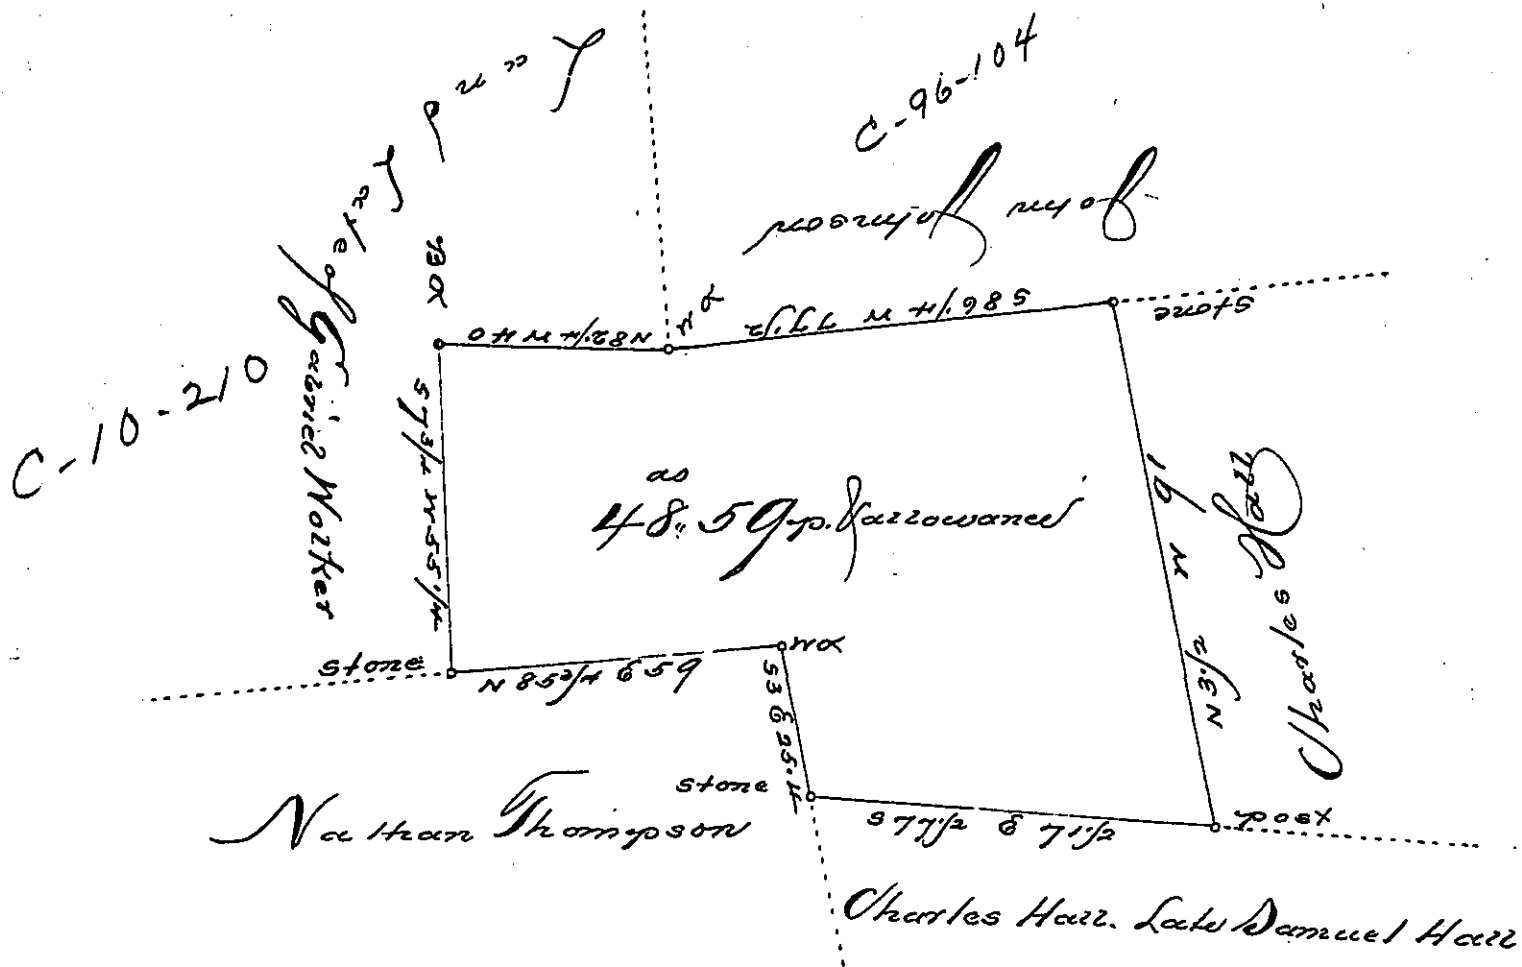 C-96-104
John Johnson
C-10-210
Gabriel Walker
Land
BO
N 82 1/4 W 40
WO
S 86 1/4 W 77 1/2
stone
S 7 3/4 W 55 1/4
as
48,, 59 p. & allowance
N 3 1/2 W 91
Charles Hall
stone
N 85 3/4 E 59
WO
S 3 E 25.4
stone
S 77 1/2 E 71 1/2
post
Nathan Thompson
Charles Hall. Late Samuel Hall